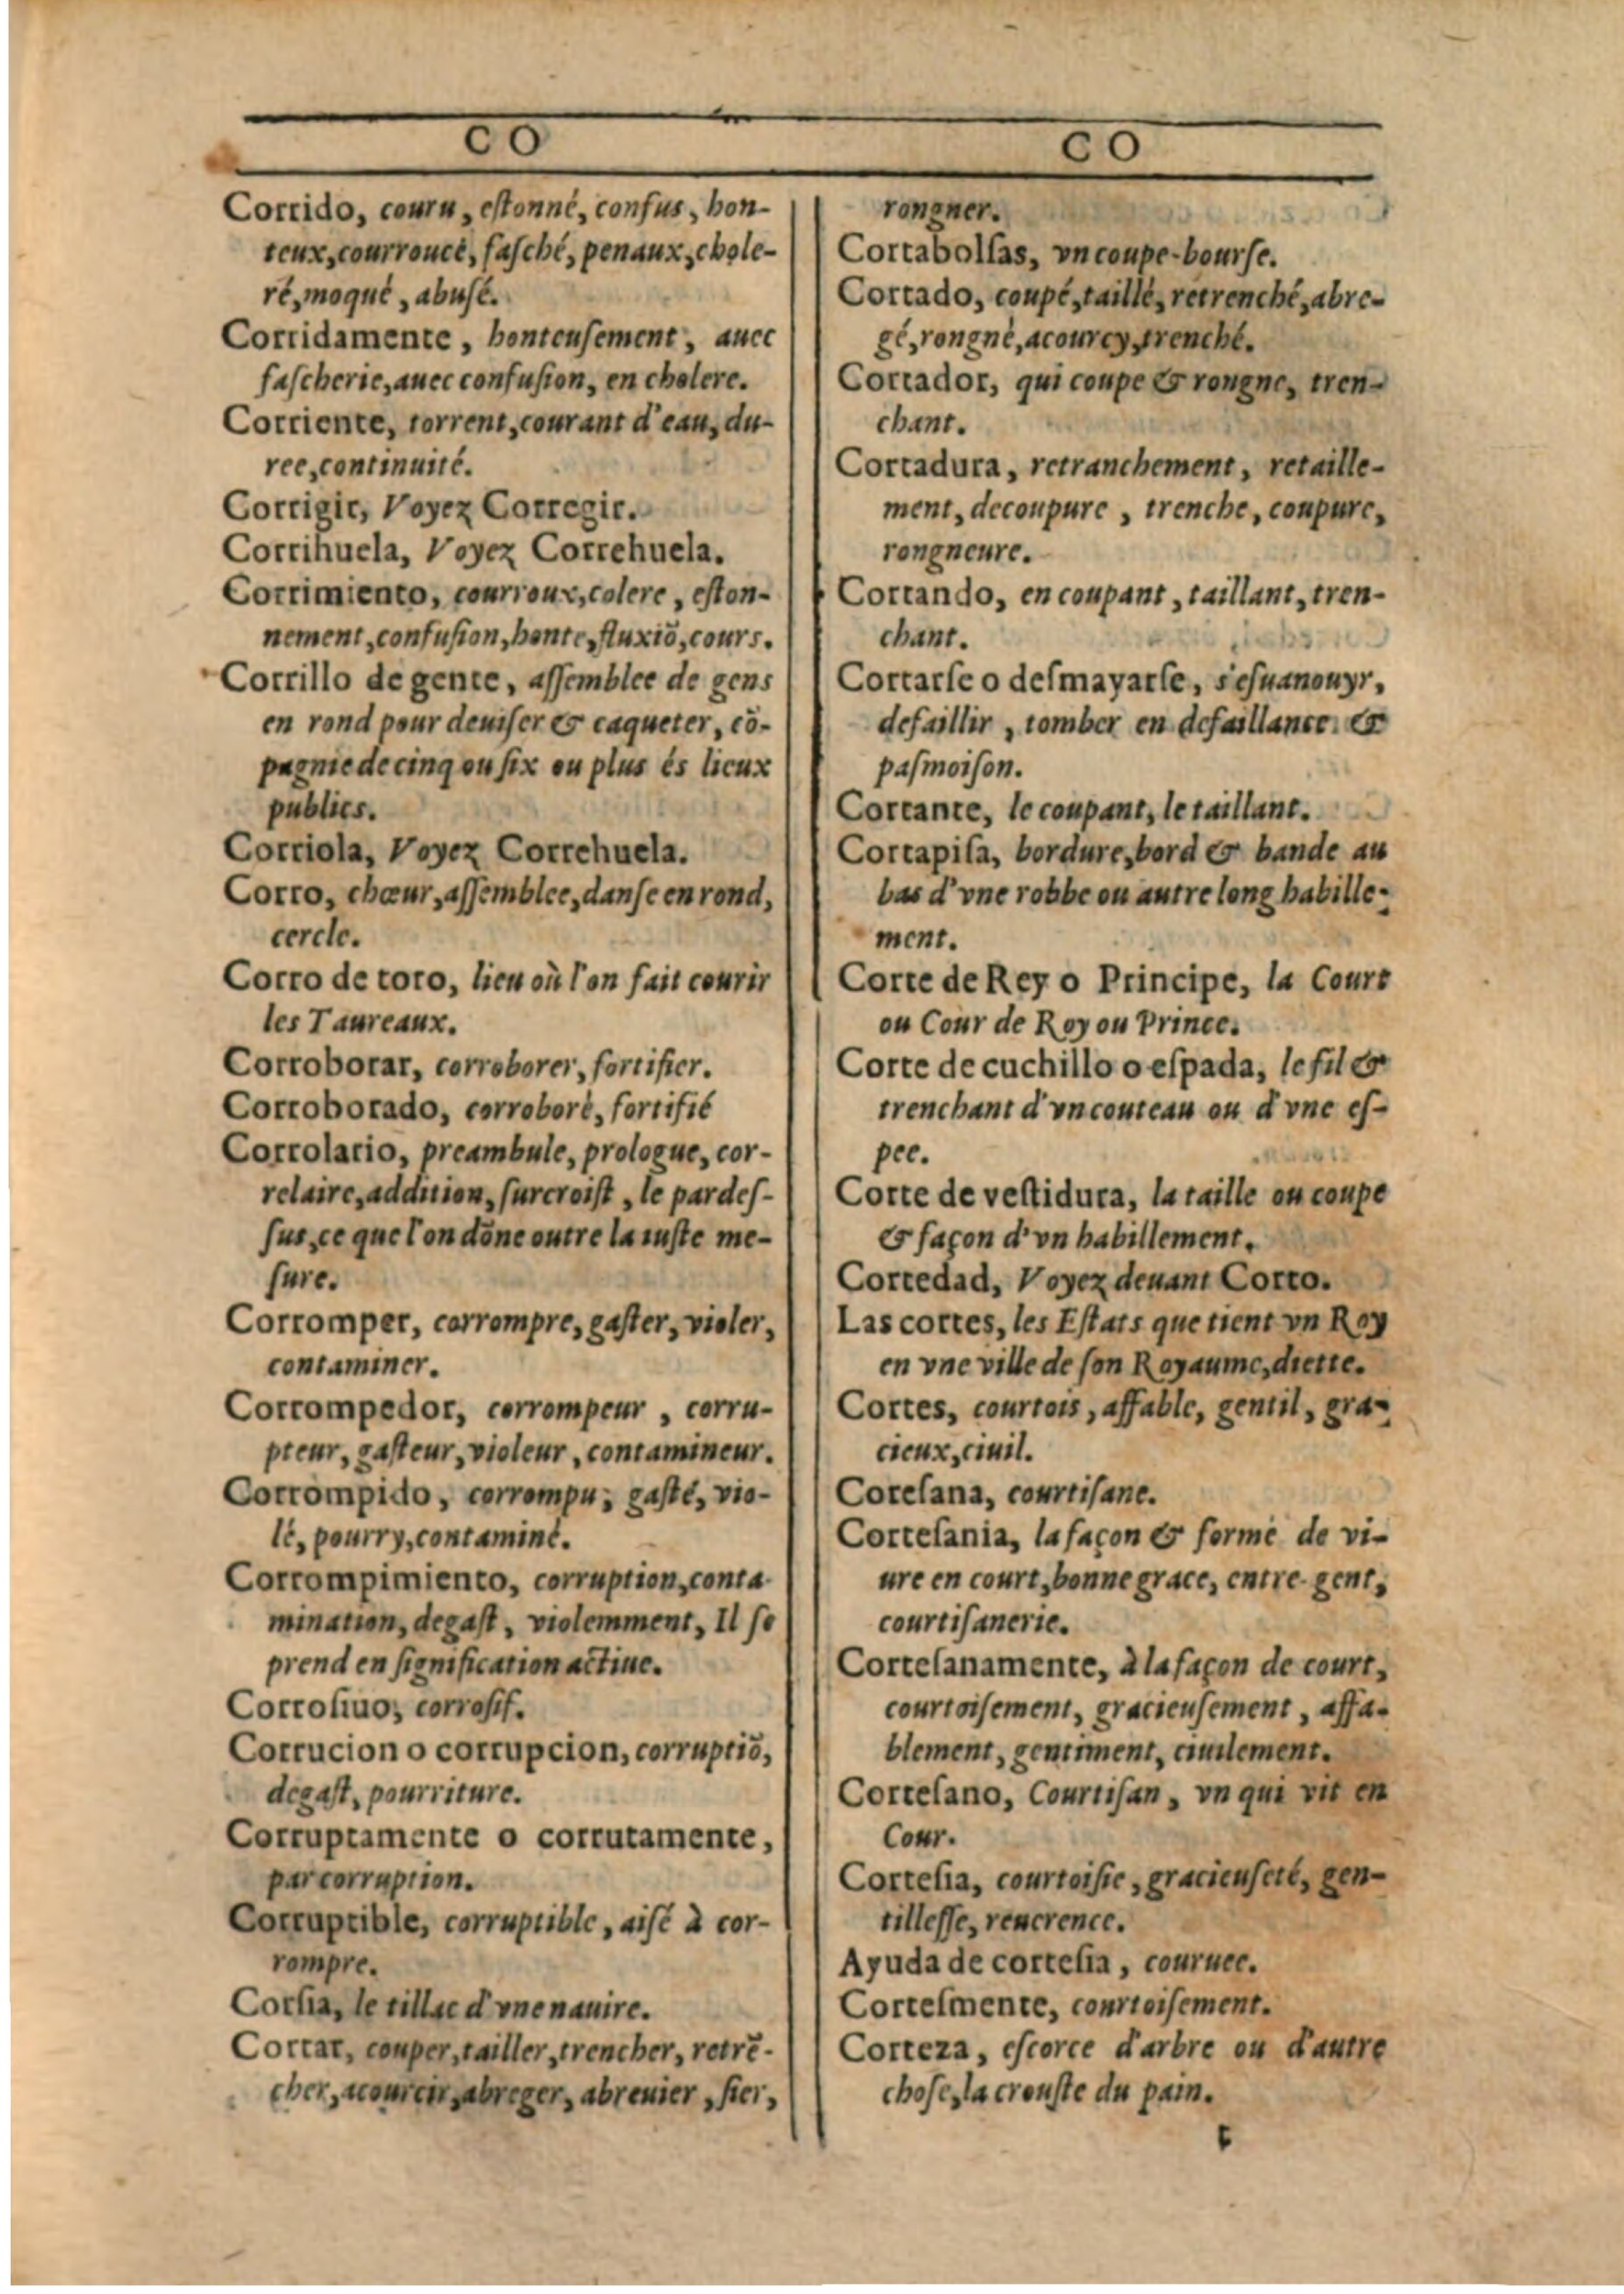 CO
Corrido, couru, estonné, confus, hon-
teux, courroucé, fasché, penaux, chole-
ré, moqué, abusé.
Corridamente, honteusement, auec
fascherie, auec confusion, en cholere.
Corriente, torrent, courant d'eau, du-
ree, continuité.
Corrigir, Voyez Corregir.
Corrihuela, Voyez Correhuela.
Corrimiento, courroux, colere, eston-
nement, confusion, honte, fluxiõ, cours.
Corrillo de gente, assemblee de gens
en rond pour deuiser & caqueter, cõ-
pagnie de cinq ou six ou plus és lieux
publics.
Corriola, Voyez Correhuela.
Corro, chœur, assemblee, danse en rond,
cercle.
Corro de toro, lieu où l'on fait courir
les Taureaux.
Corroborar, corroborer, fortifier.
Corroborado, corroboré, fortifié
Corrolario, preambule, prologue, cor-
relaire, addition, surcroist, le pardes-
sus, ce que l'on dõne outre la iuste me-
sure.
Corromper, corrompre, gaster, violer,
contaminer.
Corrompedor, corrompeur, corru-
pteur, gasteur, violeur, contamineur.
Corrompido, corrompu, gasté, vio-
lé, pourry, contaminé.
Corrompimiento, corruption, conta-
mination, degast, violemment, Il se
prend en signification actiue.
Corrosiuo, corrosif.
Corrucion o corrupcion, corruptiõ,
degast, pourriture.
Corruptamente o corrutamente,
par corruption.
Corruptible, corruptible, aisé à cor-
rompre.
Corsia, le tillac d'vne nauire.
Cortar, couper, tailler, trencher, retrẽ-
cher, acourcir, abreger, abreuier, sier,
CO
rongner.
Cortabolsas, vn coupe-bourse.
Cortado, coupé, taillé, retrenché, abre-
gé, rongné, acourcy, trenché.
Cortador, qui coupe & rongne, tren-
chant.
Cortadura, retranchement, retaille-
ment, decoupure, trenche, coupure,
rongneure.
Cortando, en coupant, taillant, tren-
chant.
Cortarse o desmayarse, s'esuanouyr,
defaillir, tomber en defaillance &
pasmoison.
Cortante, le coupant, le taillant.
Cortapisa, bordure, bord & bande au
bas d'vne robbe ou autre long habille-
ment.
Corte de Rey o Principe, la Court
ou Cour de Roy ou Prince.
Corte de cuchillo o espada, le fil &
trenchant d'vn couteau ou d'vne es-
pee.
Corte de vestidura, la taille ou coupe
& façon d'vn habillement.
Cortedad, Voyez deuant Corto.
Las cortes, les Estats que tient vn Roy
en vne ville de son Royaume, diette.
Cortes, courtois, affable, gentil, gra-
cieux, ciuil.
Coresana, courtisane.
Cortesania, la façon & forme de vi-
ure en court, bonne grace, entre-gent,
courtisanerie.
Cortesanamente, à la façon de court,
courtoisement, gracieusement, affa-
blement, gentiment, ciuilement.
Cortesano, Courtisan, vn qui vit en
Cour.
Cortesia, courtoisie, gracieuseté, gen-
tillesse, reuerence.
Ayuda de cortesia, couruee.
Cortesmente, courtoisement.
Corteza, escorce d'arbre ou d'autre
chose, la crouste du pain.